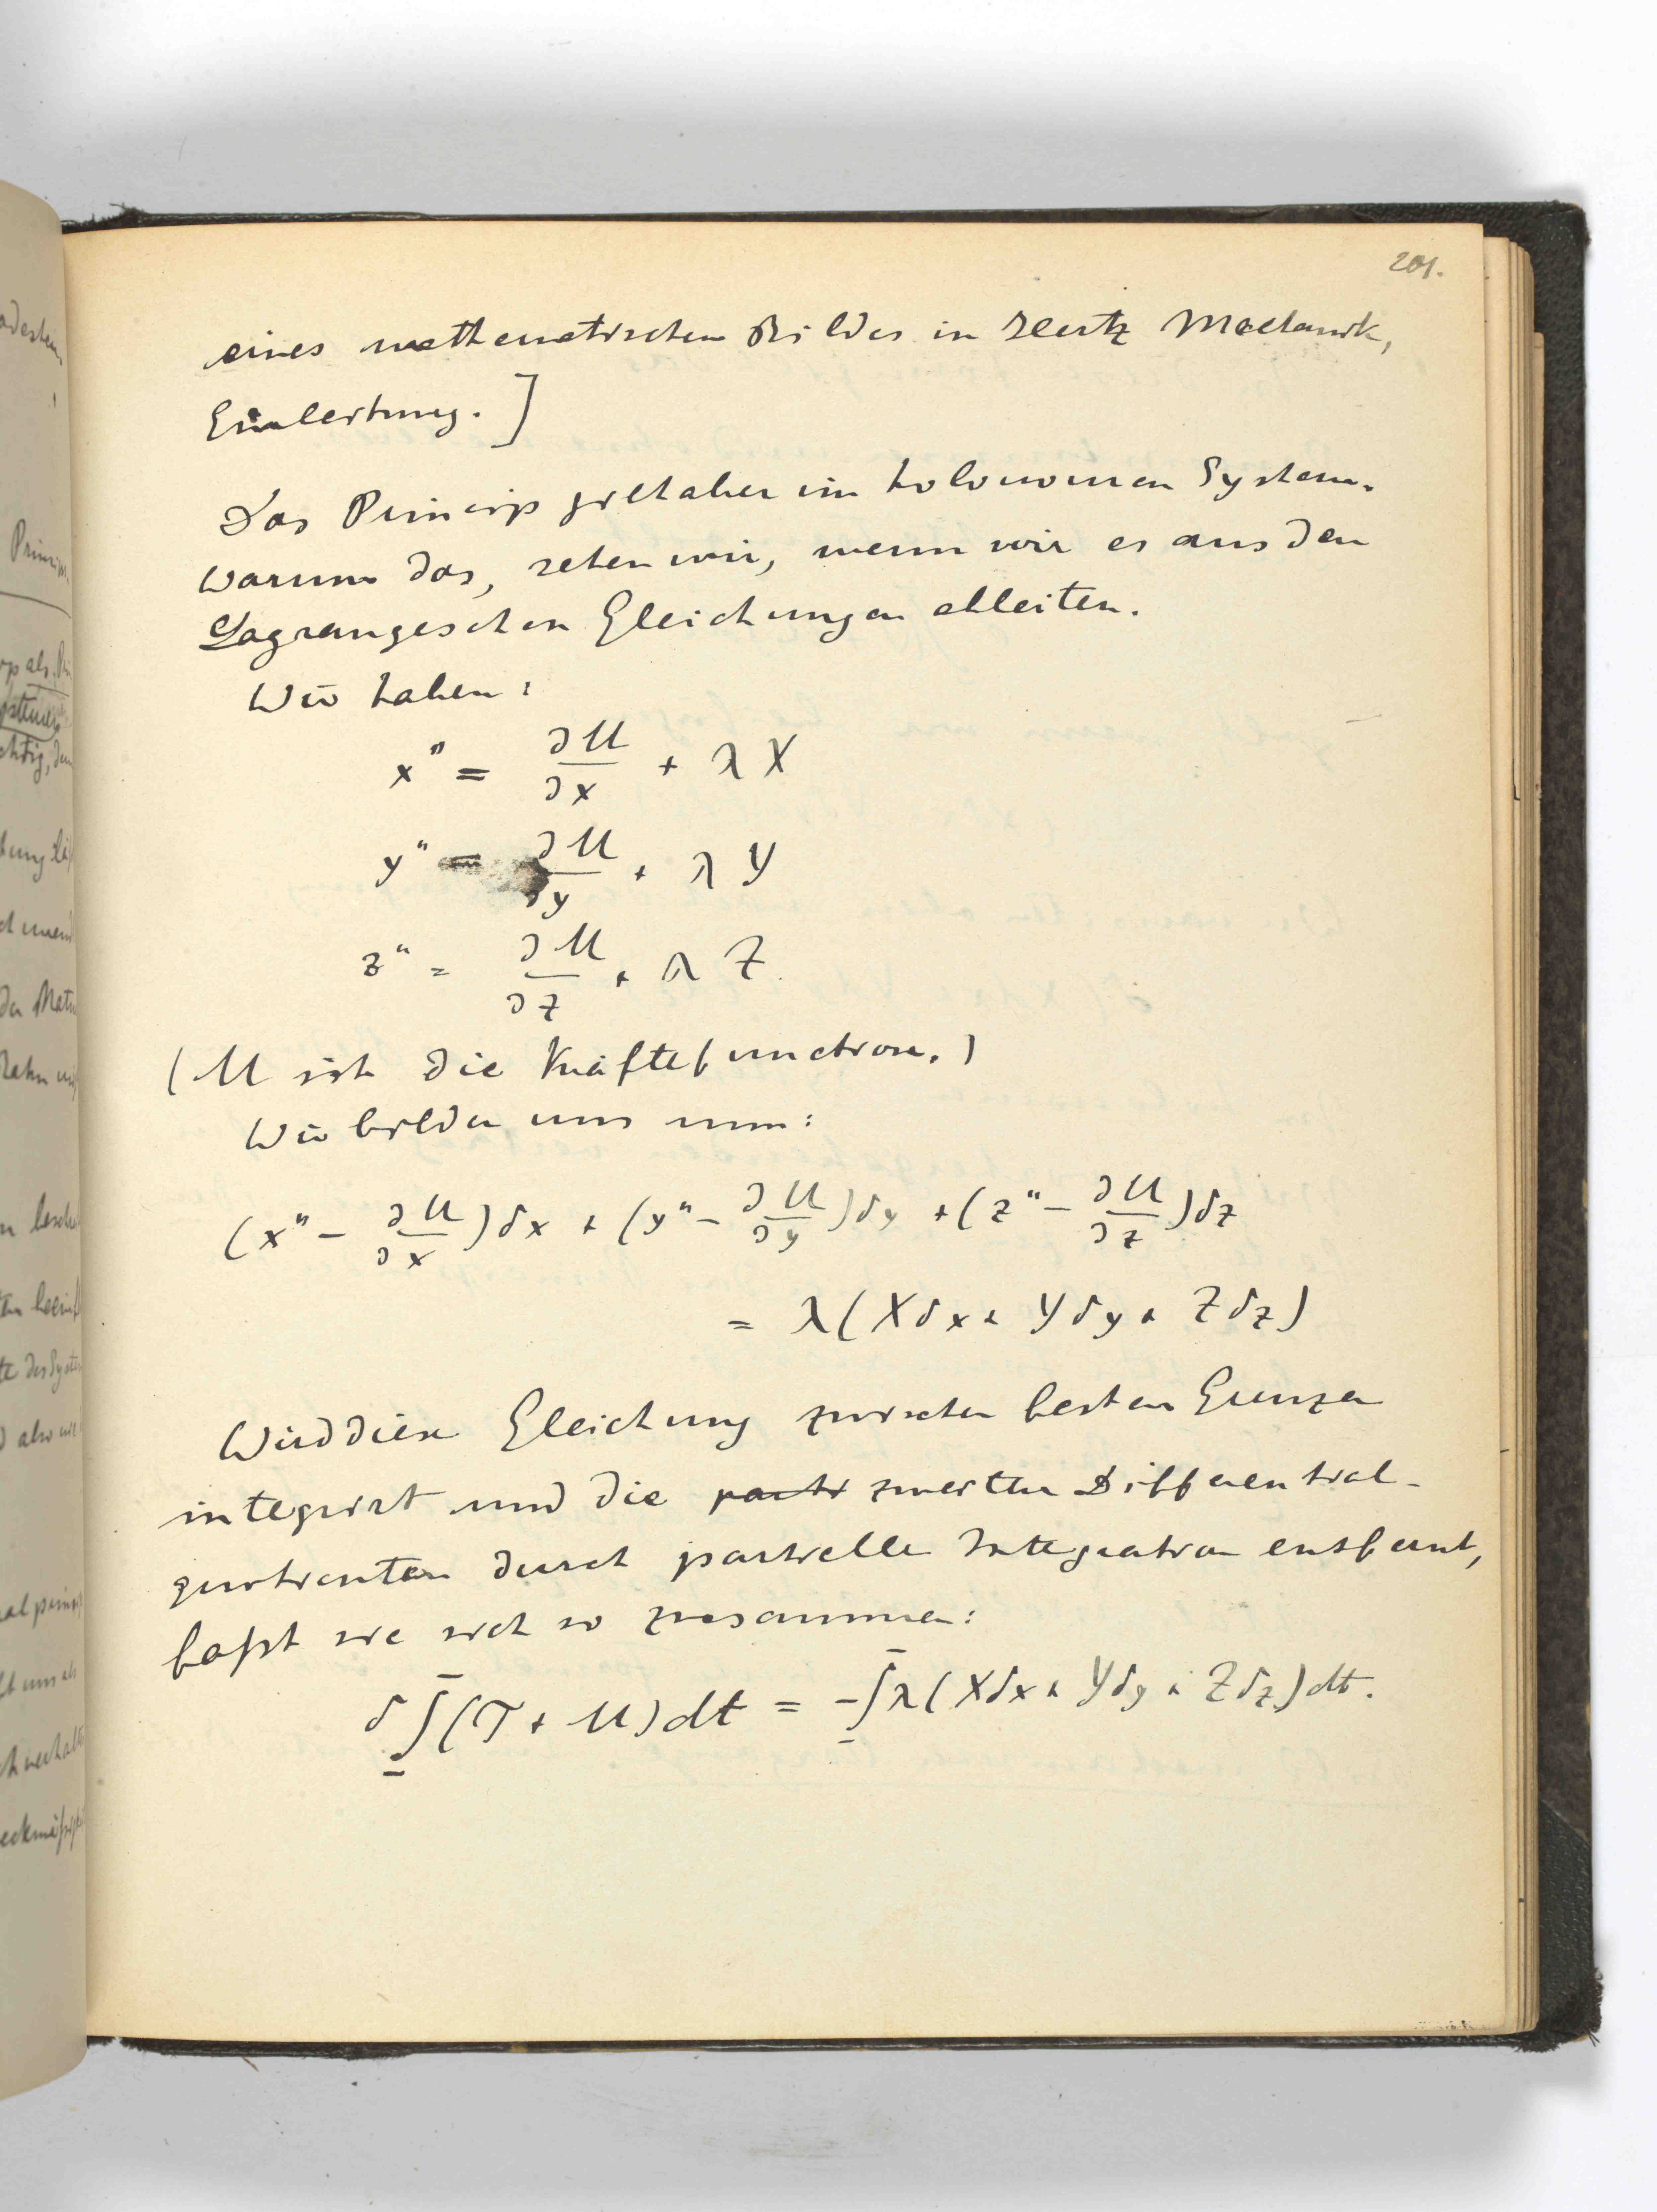 201.
eines mathematischen Bildes in Hertz Mechanik,
Einleitung.]
Das Princip gilt aber im holonomen System.
Warum das, sehen wir, wenn wir es aus den
Lagrangeschen Gleichungen ableiten.
Wir haben:
x'' = ∂U/∂x + λX
y'' = ∂U/∂y + λY
z'' = ∂U/∂z + λZ
(U ist die Kräftefunction.)
Wir bilden uns nun:
(x'' - ∂U/∂x)δx + (y'' - ∂U/∂y)δy + (z'' - ∂U/∂z)δz
= λ(Xδx + Yδy + Zδz)
Wird diese Gleichung zwischen festen Grenzen
integrirt und die zweiten Differential-
quotienten durch partielle Integration entfernt,
faßt sie sich so zusammen:
δ∫(T + U)dt = -∫λ(Xδx + Yδy + Zδz)dt.